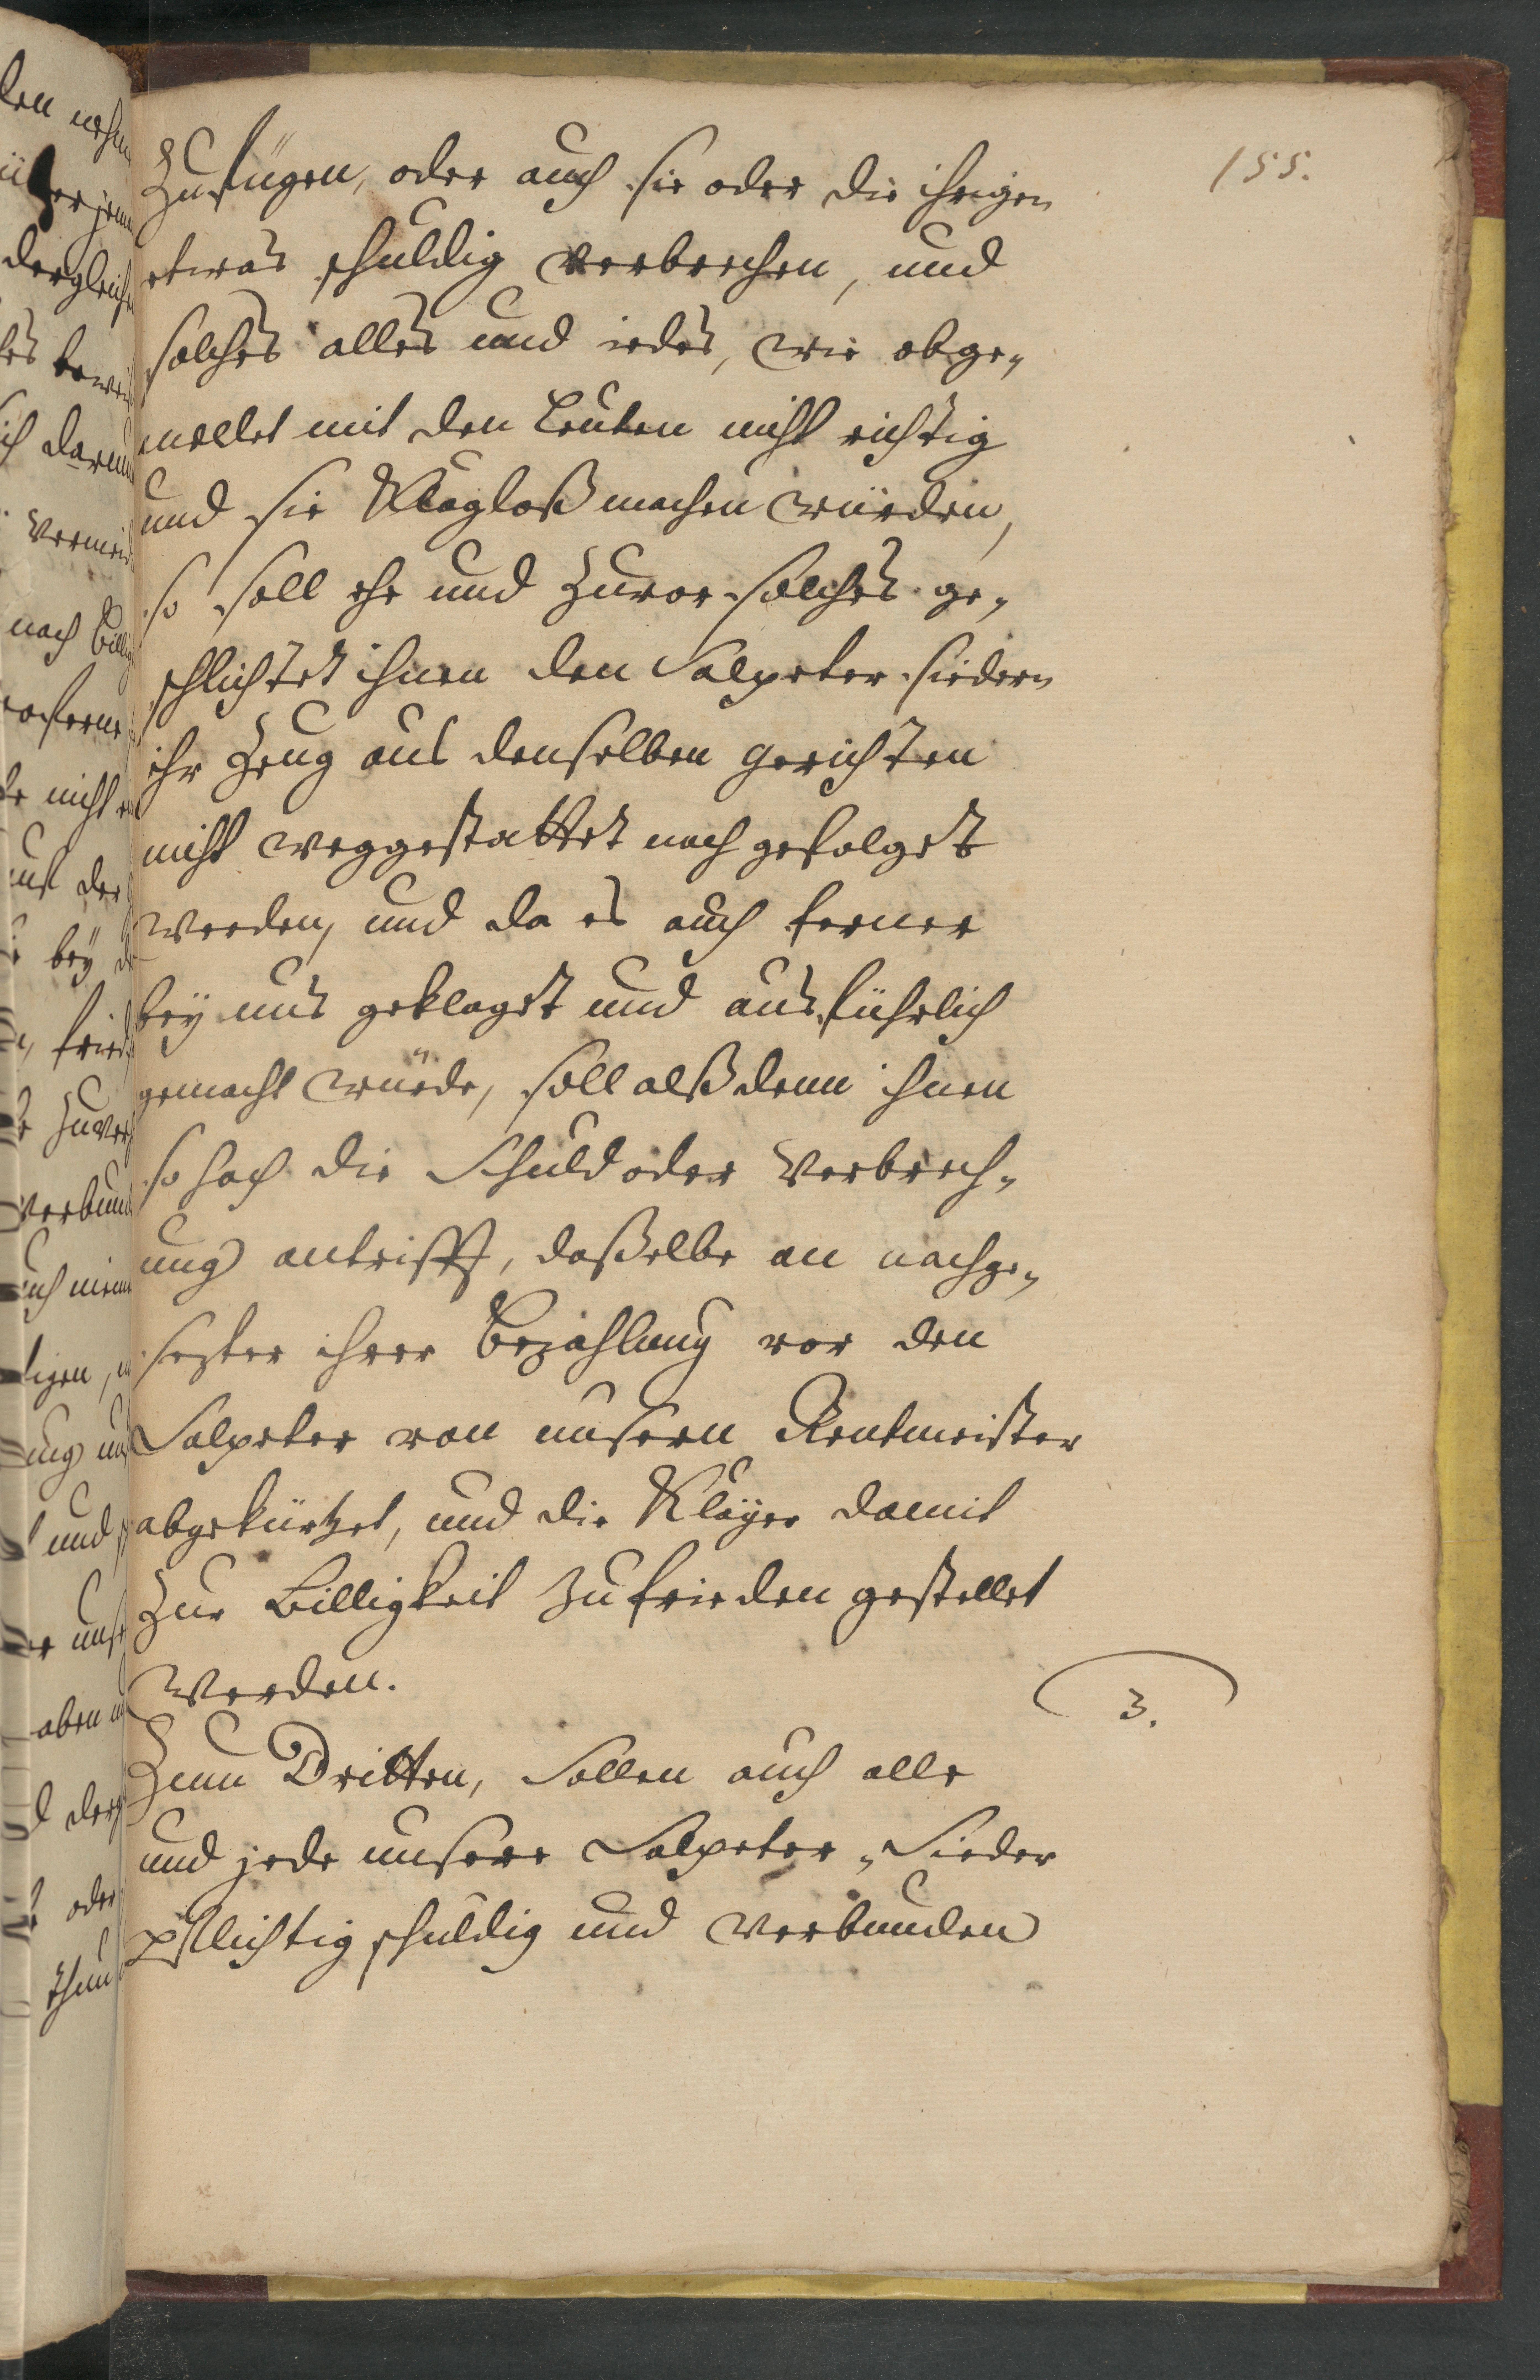 155.
Zufügen, oder auch sie oder die ihrigen
etwas schuldig verbrechen, und
solches alles und iedes, wie obge„
meldet mit den Leuten nicht richtig
und sie Klagloß machen würden,
so soll ehe und zuvor solches ge„
schlichtet ihnen den Salpeter siedern
ihr Zeug aus denselben gerichten
nicht weggestattet noch gefolget
werden, und da es auch ferner
bey uns geklaget und ausführlich
gemacht würde, soll alßdenn ihnen
so hoch die Schuld oder Verbrech„
ung antrifft, daßelbe an nachge„
sezter ihrer Bezahlung vor den
Salpeter von unsern Rentmeister
abgekürtzet, und die Kläger damit
zur Billigkeit zufrieden gestellet
werden.
3.
Zum Dritten, Sollen auch alle
und jede unsere Salpeter„Sieder
pflichtig schuldig und verbunden